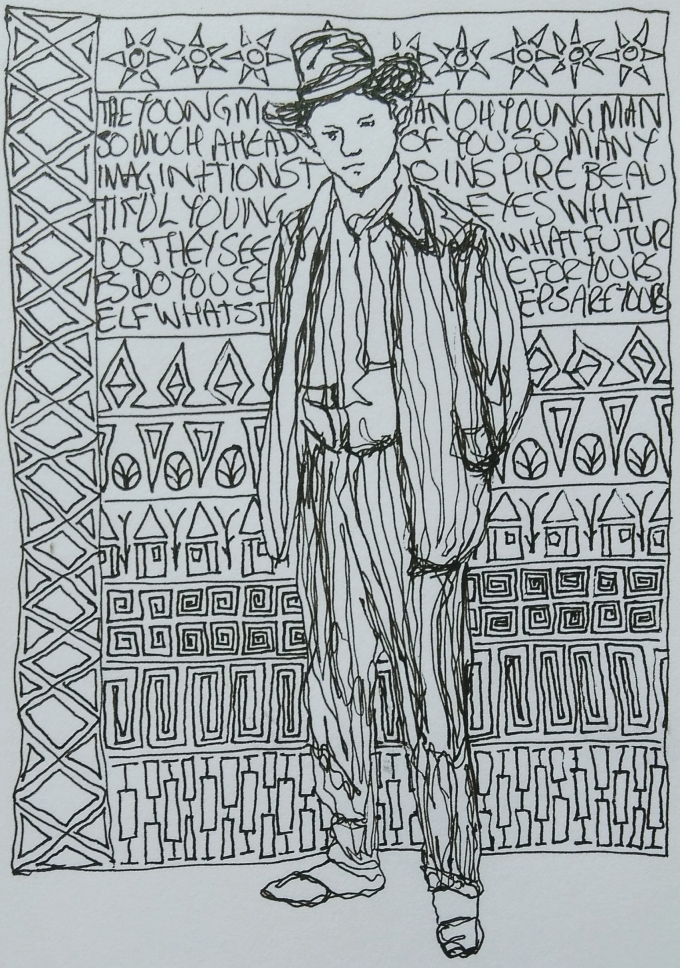 THE YOUNG M AN OH YOUNG MAN
SO MUCH AHEAD OF YOU SO MANY
IMAGINATIONS T O INSPIRE BEAU
TIFUL YOUNG EYES WHAT
DO THEY SEE WHAT FUTUR
ES DO YOU SE E FOR YOURS
ELF WHAT ST EPS ARE YOURS